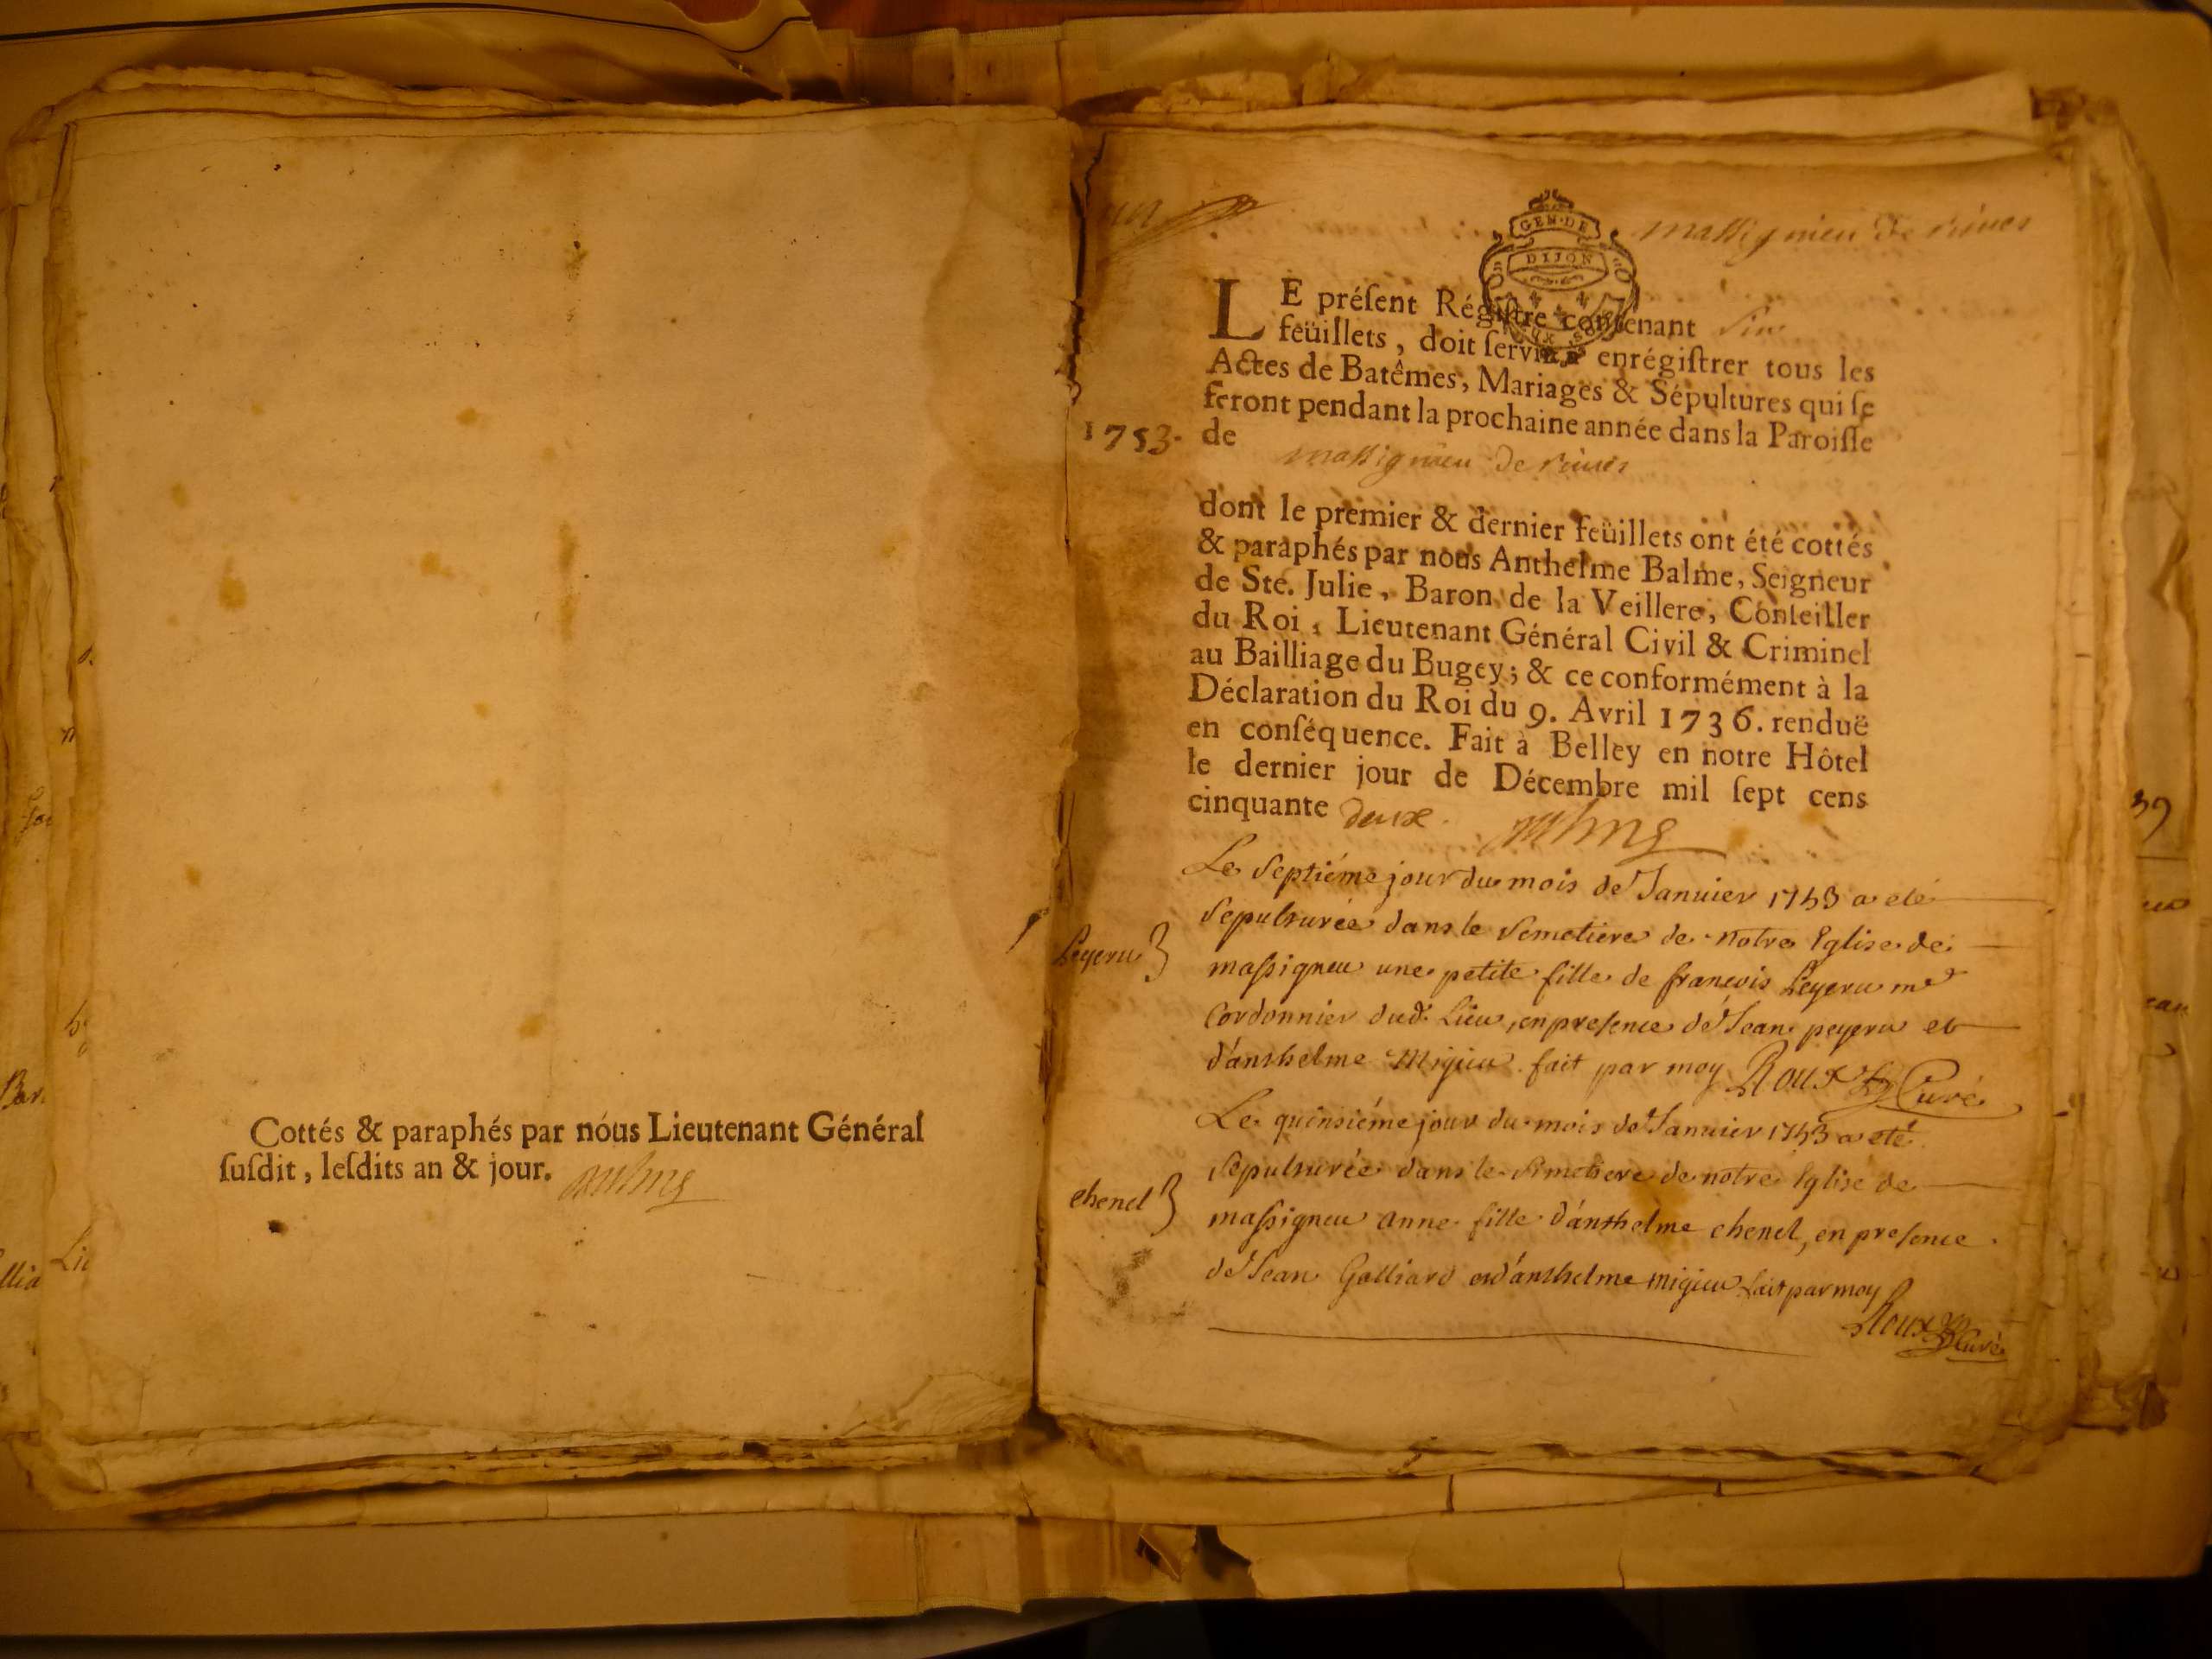 Cottés & paraphés par nous Lieutenant Général
ſuſdit, leſdits an & jour.
un
GEN·DE
DIJON
massignieu de rives
LE préſent Régiſtre contenant Six
feüillets, doit ſervir à enrégiſtrer tous les
Actes de Batêmes, Mariages & Sépultures qui ſe
feront pendant la prochaine année dans la Paroiſſe
1753. de
massignieu de rives
dont le premier & dernier feüillets ont été cottés
& paraphés par nous Anthelme Balme, Seigneur
de Ste. Julie, Baron de la Veillere, Conſeiller
du Roi, Lieutenant Général Civil & Criminel
au Bailliage du Bugey; & ce conformément à la
Déclaration du Roi du 9. Avril 1736. renduë
en conſéquence. Fait à Belley en notre Hôtel
le dernier jour de Décembre mil ſept cens
cinquante deux.
Le Septiéme jour du mois de Januier 1753 a eté
Sepulturée dans le Semetiere de notre Eglise de
Peyeru
massigneu une petite fille de francois Peyeru me
Cordonnier dud. Lieu, en presence de Jean peyeru et
d'anthelme Migieu fait par moy Roux Curé
Le quinsiéme jour du mois de Januier 1753 a eté
Sepulturée dans le Simetiere de notre Eglise de
chenel
massigneu anne fille d'anthelme chenel, en presence
de Jean Galliard et d'anthelme migieu fait par moy
Roux Curé